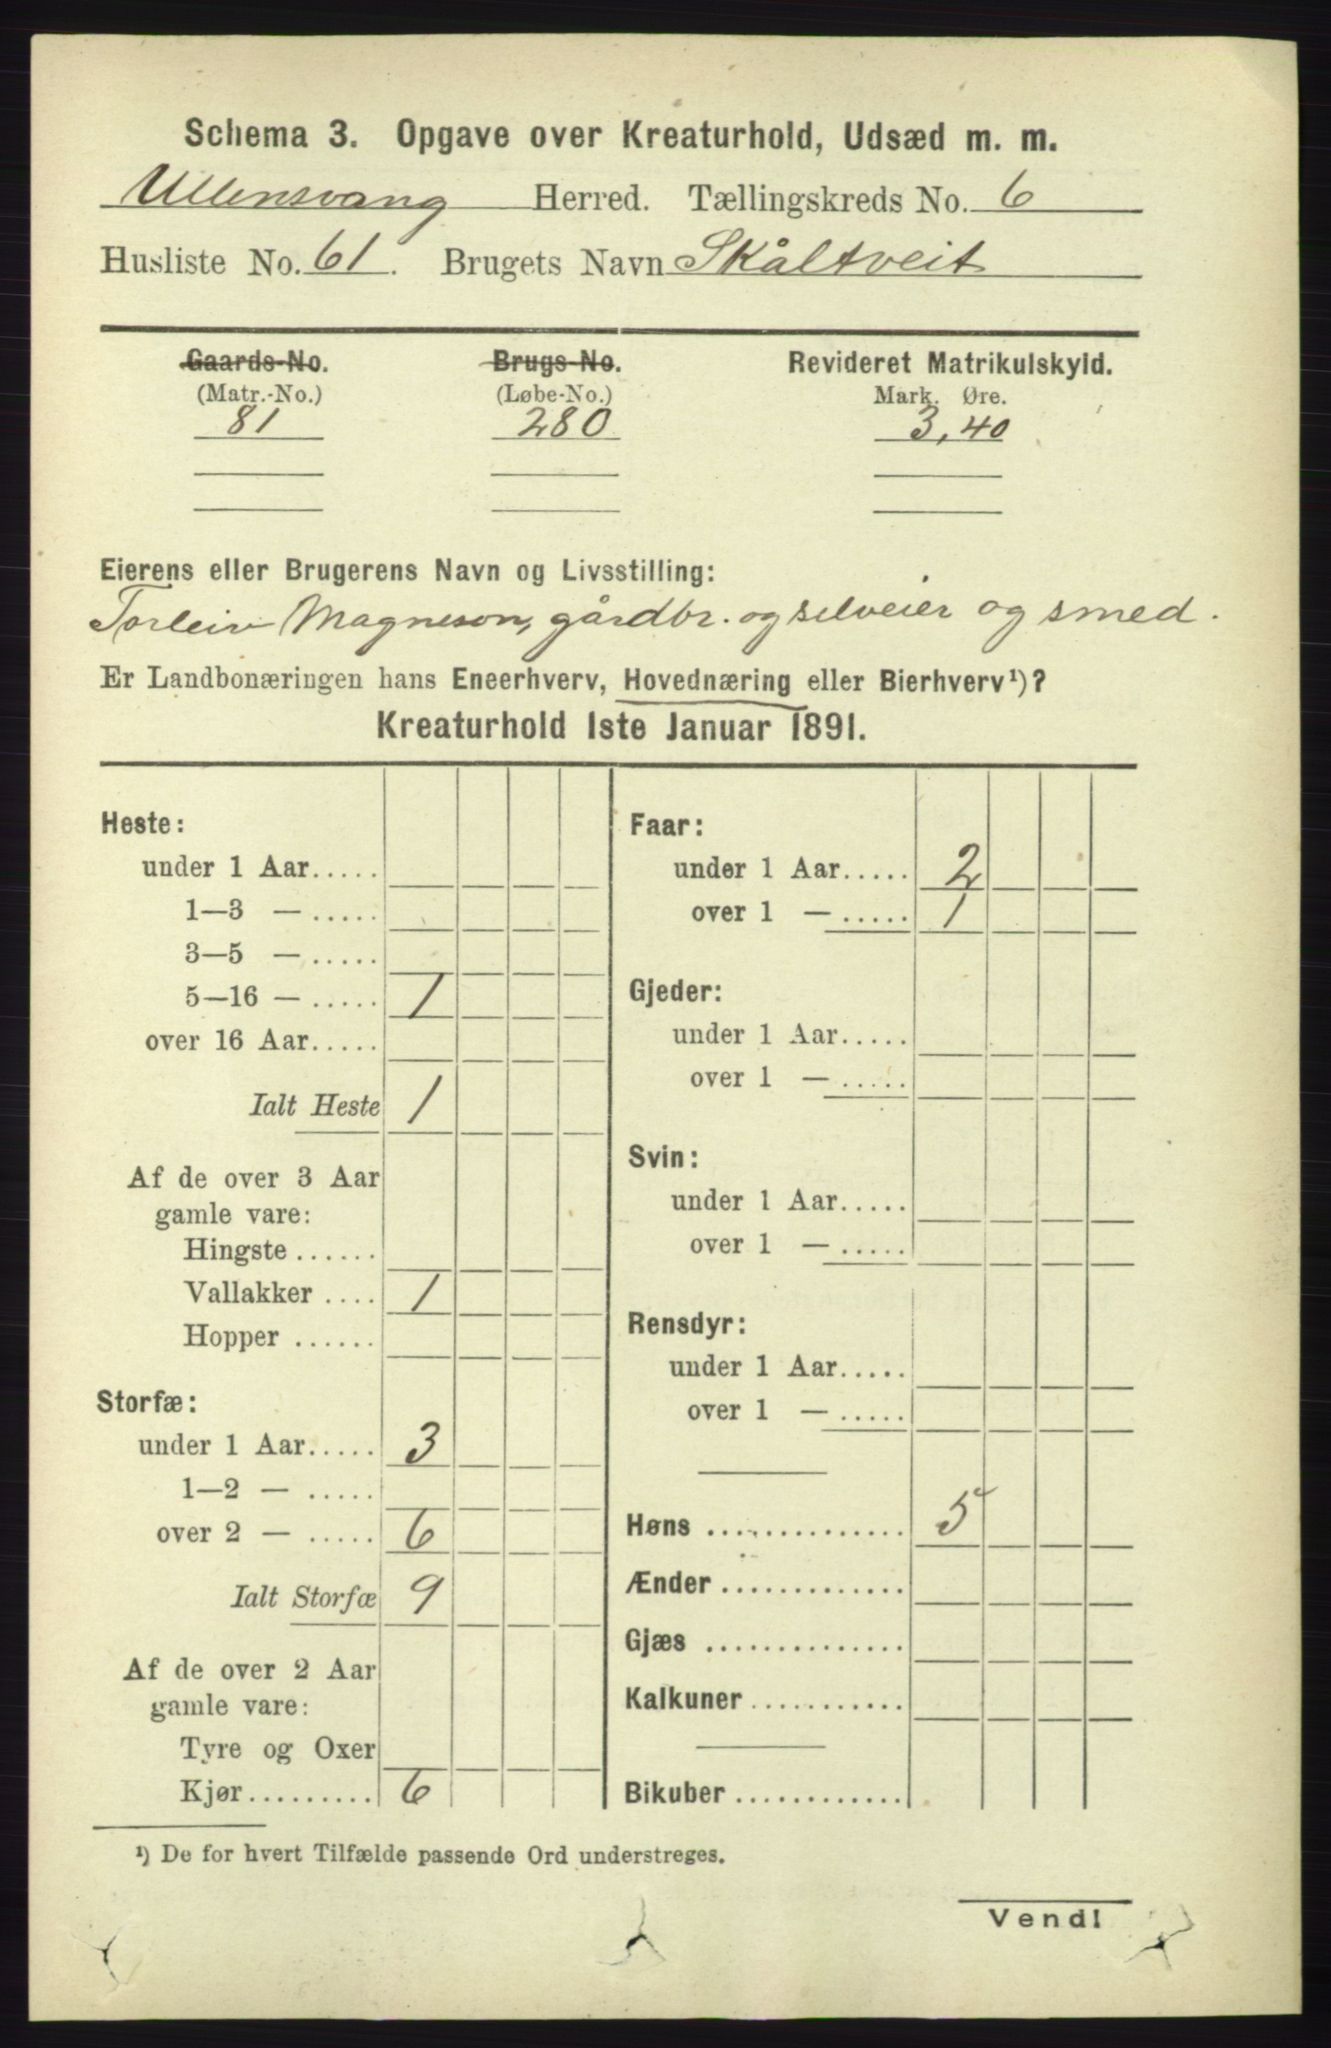 Schema 3. Opgave over Kreaturhold, Udsæd m. m.
Ullensvang Herred. Tællingskreds No. 6
Husliste No. 61. Brugets Navn Skåltveit
Gaards-No. Brugs-No. Revideret Matrikulskyld.
(Matr.-No.) (Løbe-No.) Mark. Øre.
81 280 3,40
Eierens eller Brugerens Navn og Livsstilling:
Torleiv Magneson, gårdbr. og selveier og smed.
Er Landbonæringen hans Eneerhverv, Hovednæring eller Bierhverv¹)?
Kreaturhold 1ste Januar 1891.
Heste:
under 1 Aar.....
1—3 — .....
3—5 — .....
5—16 — ..... 1
over 16 Aar.....
Ialt Heste 1
Af de over 3 Aar
gamle vare:
Hingste ......
Vallakker .... 1
Hopper ......
Storfæ:
under 1 Aar..... 3
1—2 — .....
over 2 — ..... 6
Ialt Storfæ 9
Af de over 2 Aar
gamle vare:
Tyre og Oxer
Kjør......... 6
Faar:
under 1 Aar..... 2
over 1 — ..... 1
Gjeder:
under 1 Aar.....
over 1 — .....
Svin:
under 1 Aar.....
over 1 — .....
Rensdyr:
under 1 Aar.....
over 1 — .....
Høns .............. 5
Ænder .............
Gjæs ..............
Kalkuner ...........
Bikuber ............
¹) De for hvert Tilfælde passende Ord understreges.
Vend!